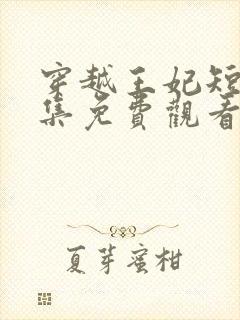 穿越王妃短
集免費觀看
夏芽蜜柑